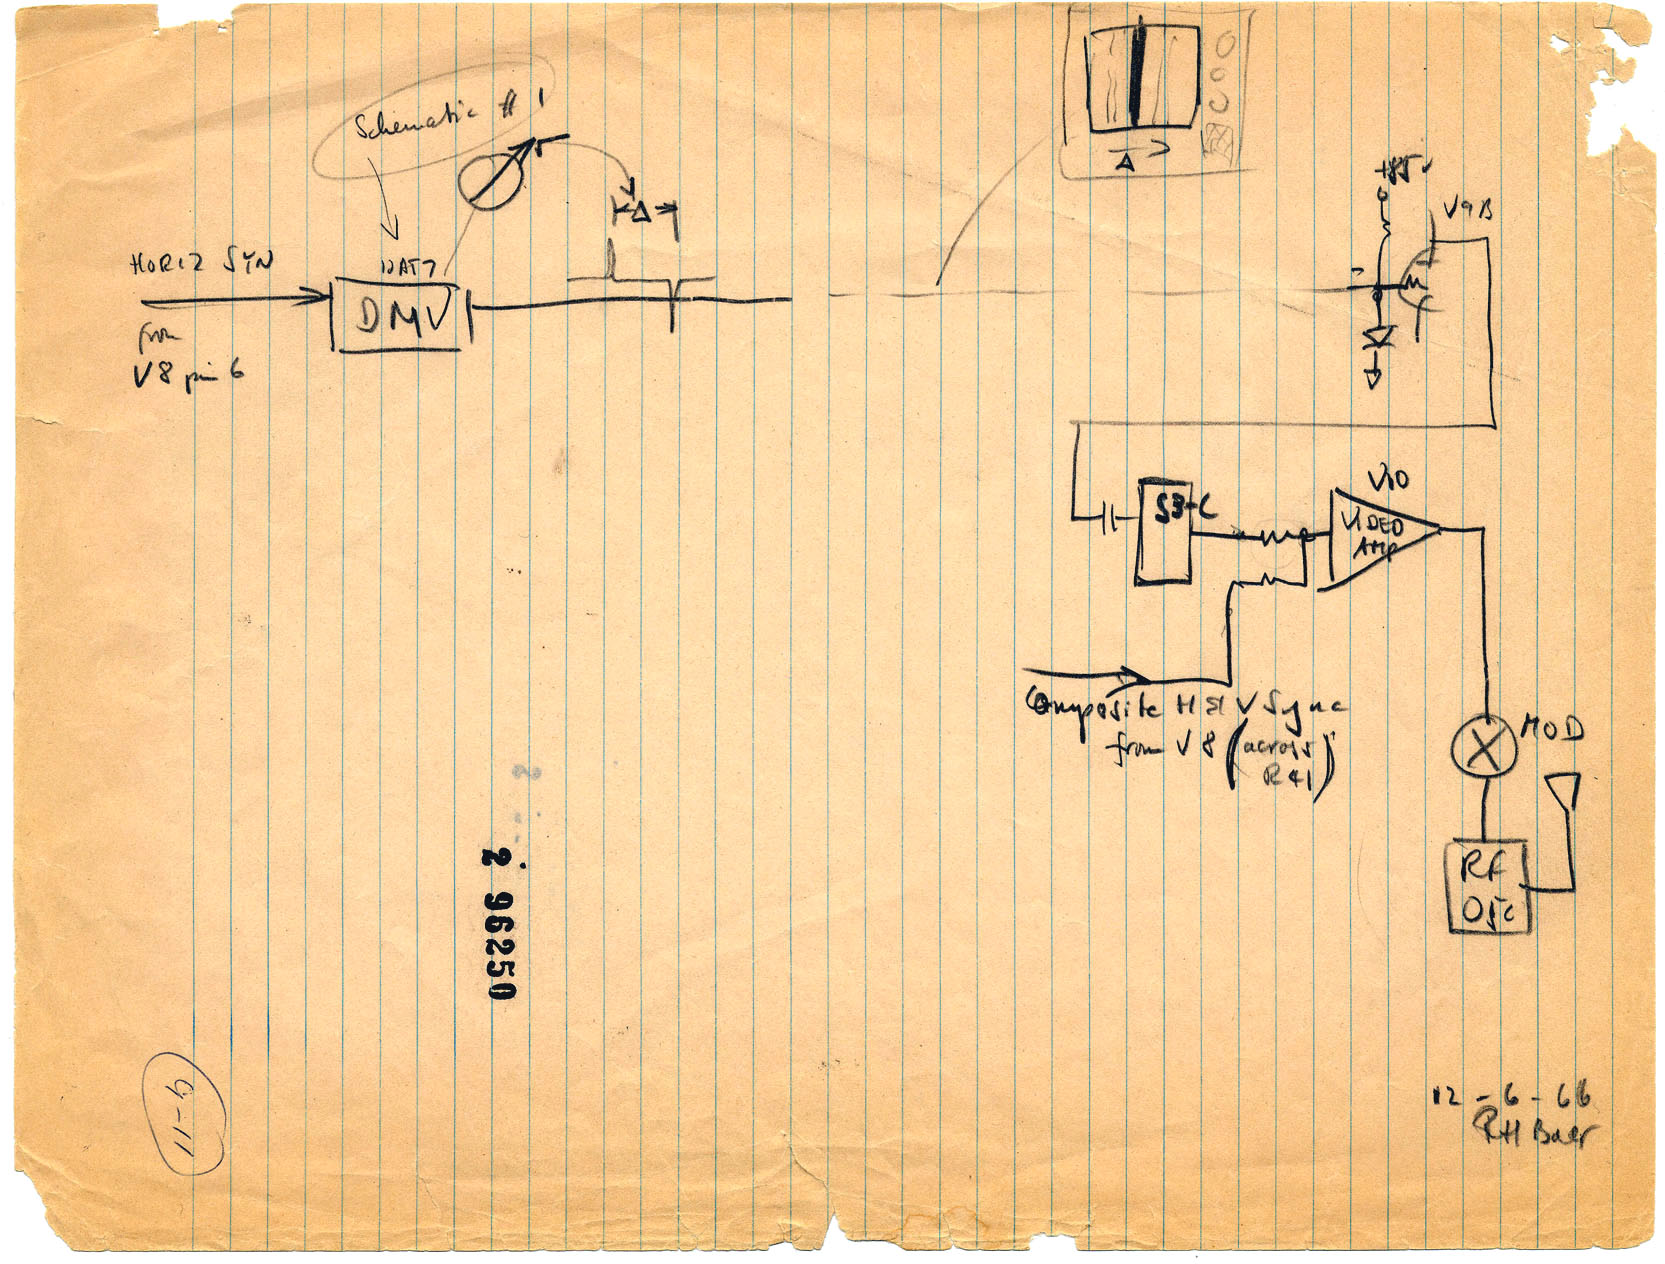 Schematic # 1
Δ
Δ
+85v
V9B
HORIZ SYN
12AT7
DMV
from
V8 pin 6
V10
S3-C
VIDEO
AMP
Composite H & V Sync
from V8 (across
R41)
MOD
RF
OSC
2 96250
4-11
12-6-66
RH Baer